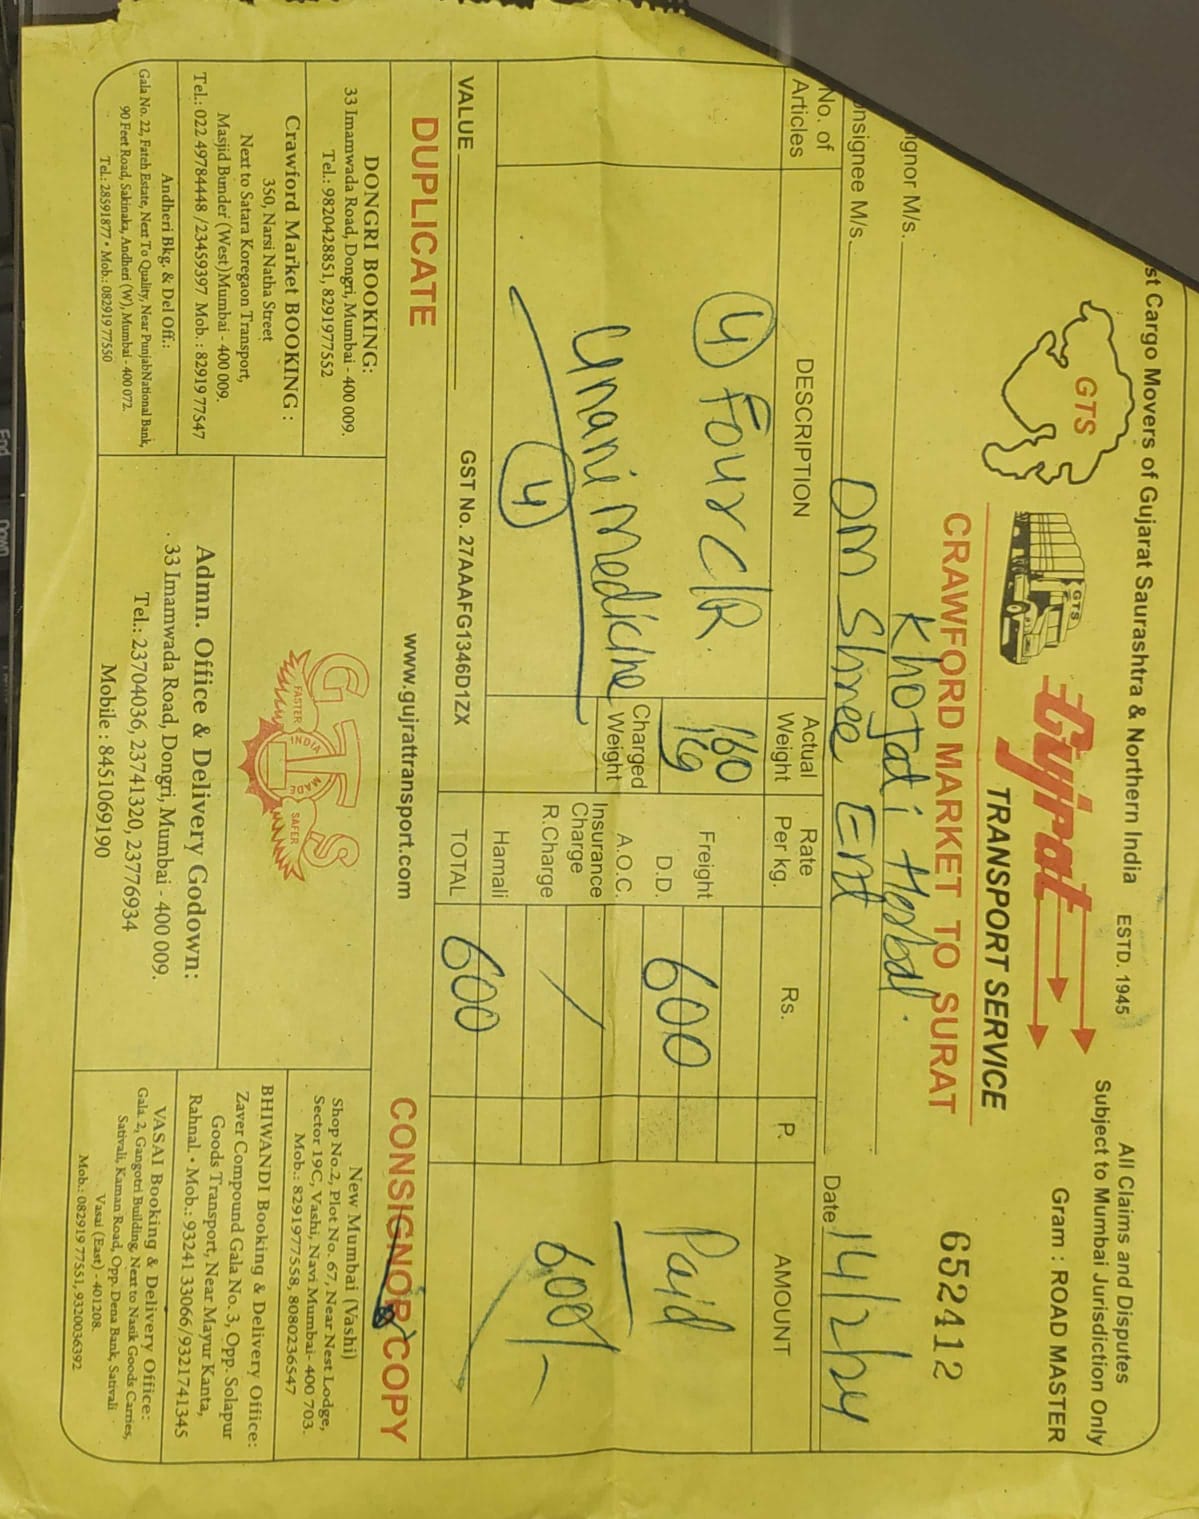 st Cargo Movers of Gujarat Saurashtra & Northern India ESTD. 1945
All Claims and Disputes
Subject to Mumbai Jurisdiction Only
Gram : ROAD MASTER
GTS
GTS
Gujrat
TRANSPORT SERVICE
CRAWFORD MARKET TO SURAT
652412
ignor M/s. Khojati Herbal.
onsignee M/s. Om Shree Ent
Date 14/2/24
No. of Articles
DESCRIPTION
Actual Weight
Rate Per kg.
Rs.
P.
AMOUNT
4 Four C/R.
160 kg
Freight
D.D. 600
Paid
Unani medicine
Charged Weight
A.O.C.
Insurance Charge
R.Charge
600/-
4
Hamali
VALUE
GST No. 27AAAFG1346D1ZX
TOTAL 600
DUPLICATE
www.gujrattransport.com
CONSIGNOR COPY
DONGRI BOOKING:
33 Imamwada Road, Dongri, Mumbai - 400 009.
Tel.: 9820428851, 8291977552
Crawford Market BOOKING :
350, Narsi Natha Street
Next to Satara Koregaon Transport,
Masjid Bunder (West) Mumbai - 400 009.
Tel.: 022 49784448 /23459397 Mob. : 82919 77547
Andheri Bkg. & Del Off.:
Gala No. 22, Fateh Estate, Next To Quality, Near PunjabNational Bank,
90 Feet Road, Sakinaka, Andheri (W), Mumbai - 400 072.
Tel.: 28591877 • Mob.: 082919 77550
GTS
FASTER
INDIA
MADE
SAFER
Admn. Office & Delivery Godown:
33 Imamwada Road, Dongri, Mumbai - 400 009.
Tel.: 23704036, 23741320, 23776934
Mobile : 8451069190
New Mumbai (Vashi)
Shop No.2, Plot No. 67, Near Nest Lodge,
Sector 19C, Vashi, Navi Mumbai- 400 703.
Mob.: 8291977558, 8080236547
BHIWANDI Booking & Delivery Office:
Zaver Compound Gala No. 3, Opp. Solapur
Goods Transport, Near Mayur Kanta,
Rahnal. • Mob.: 93241 33066/9321741345
VASAI Booking & Delivery Office:
Gala. 2, Gangotri Building, Next to Nasik Goods Carries,
Sativali, Kaman Road, Opp. Dena Bank, Sativali
Vasai (East) - 401208.
Mob.: 082919 77551, 9320036392
End
Down